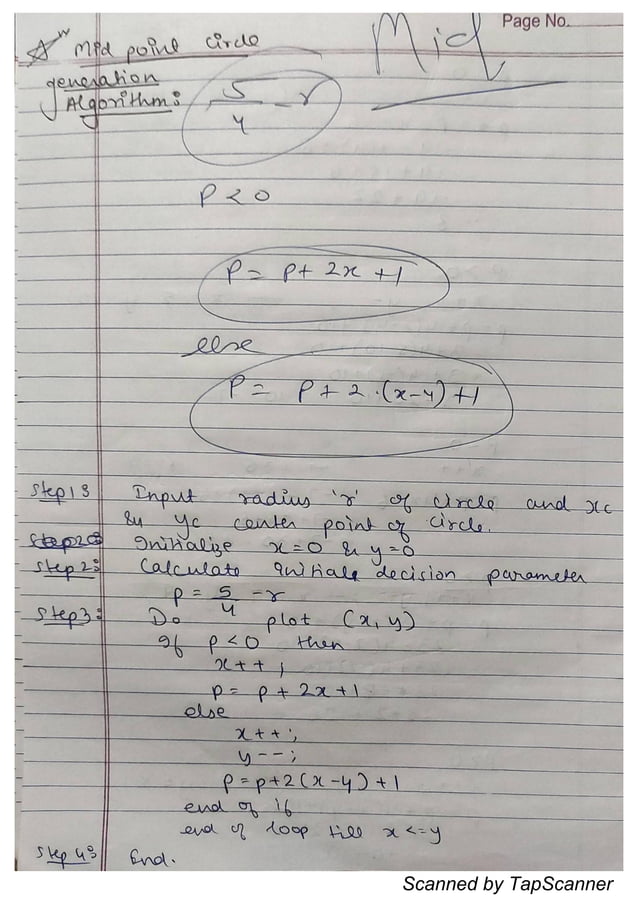 Page No.
Mid
Mid point circle
generation
Algorithm:
5/4 - r
P < 0
P = P + 2x + 1
else
P = P + 2.(x-y) + 1
Step 1: Input radius 'r' of circle and xc
& yc center point of circle.
Step 2: Initialize x=0 & y=0
Step 2: Calculate initial decision parameter
p = 5/4 - r
Step 3: Do plot (x, y)
If p<0 then
x++;
p = p + 2x + 1
else
x++;
y--;
p = p + 2(x-y) + 1
end of if
end of loop till x <= y
Step 4: End.
Scanned by TapScanner